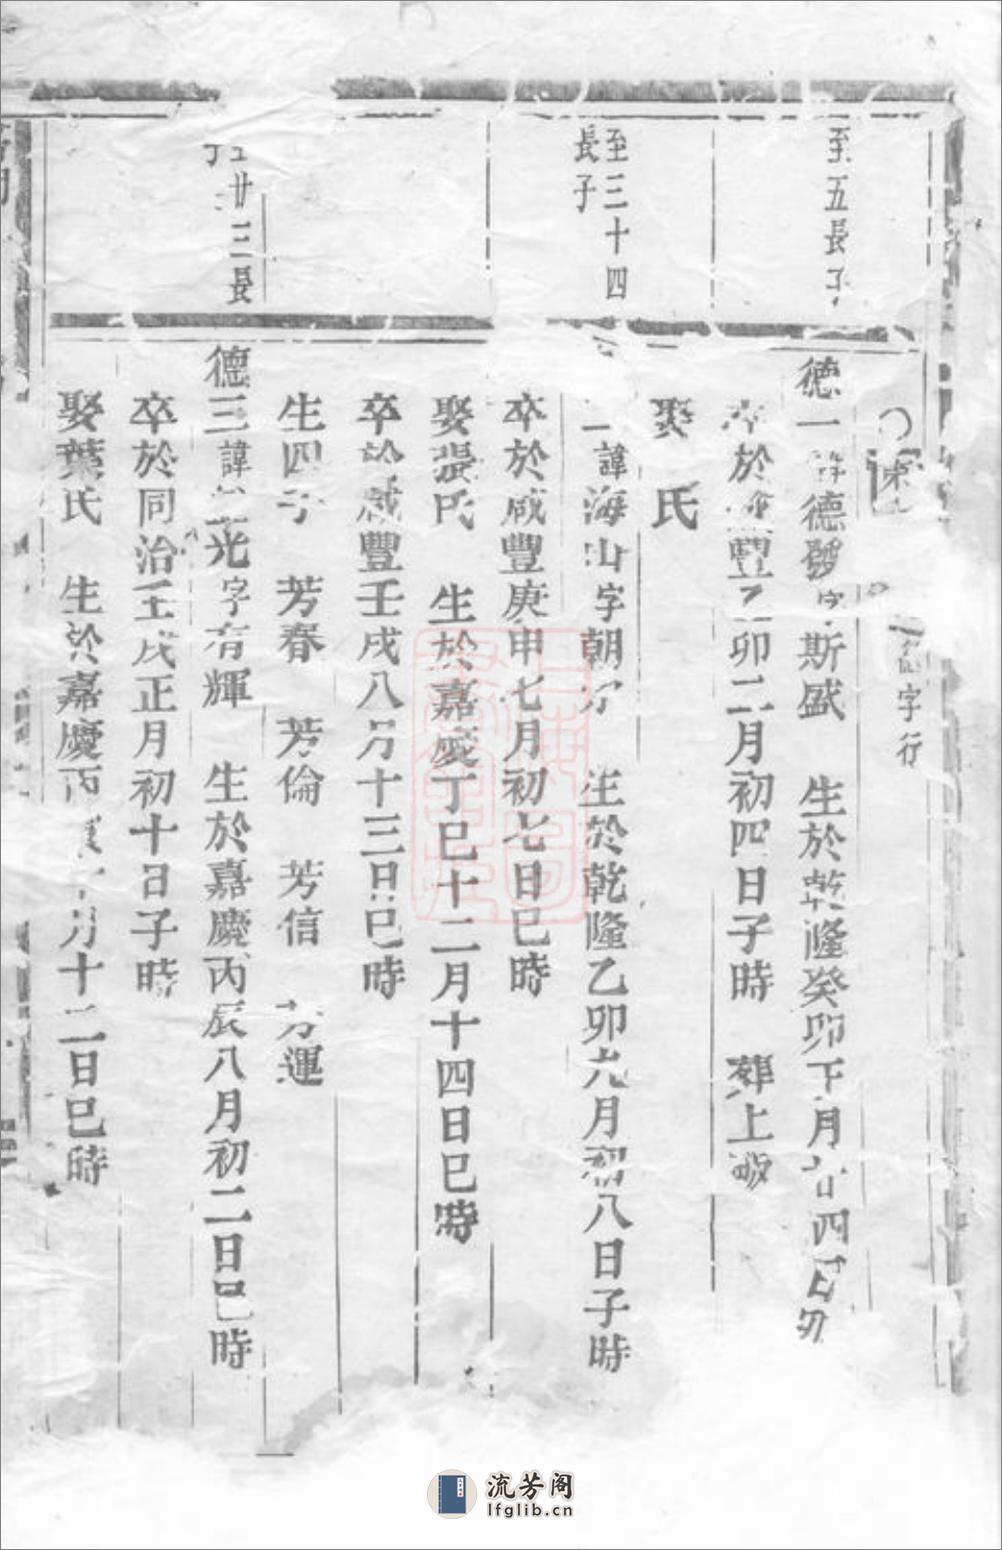 至五長子
至三十四
長子
廿三長
字行
德一諱德發字斯盛 生於乾隆癸卯月廿四日卯
卒於咸豐乙卯二月初四日子時 葬上畈
娶 氏
諱海山字朝 生於乾隆乙卯九月初八日子時
卒於咸豐庚申七月初七日巳時
娶張氏 生於嘉慶丁巳十二月十四日巳時
卒於咸豐壬戌八月十三日巳時
生四子 芳春 芳倫 芳信 芳運
德三諱光字有輝 生於嘉慶丙辰八月初二日巳時
卒於同治壬戌正月初十日子時
娶葉氏 生於嘉慶丙月十二日巳時
流芳阁
lfglib.cn